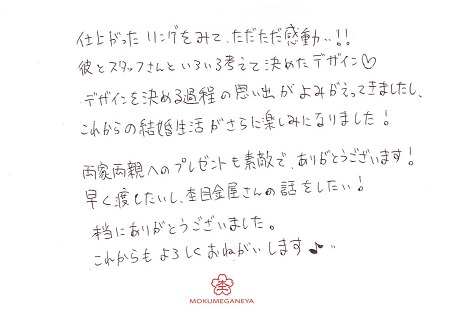 仕上がったリングをみて、ただただ感動…!!
彼とスタッフさんといろいろ考えて決めたデザイン♡
デザインを決める過程の思い出がよみがえってきましたし、
これからの結婚生活がさらに楽しみになりました!
両家両親へのプレゼントも素敵で、ありがとうございます!
早く渡したいし、杢目金屋さんの話をしたい!
本当にありがとうございました。
これからもよろしくおねがいします♪…
MOKUMEGANEYA